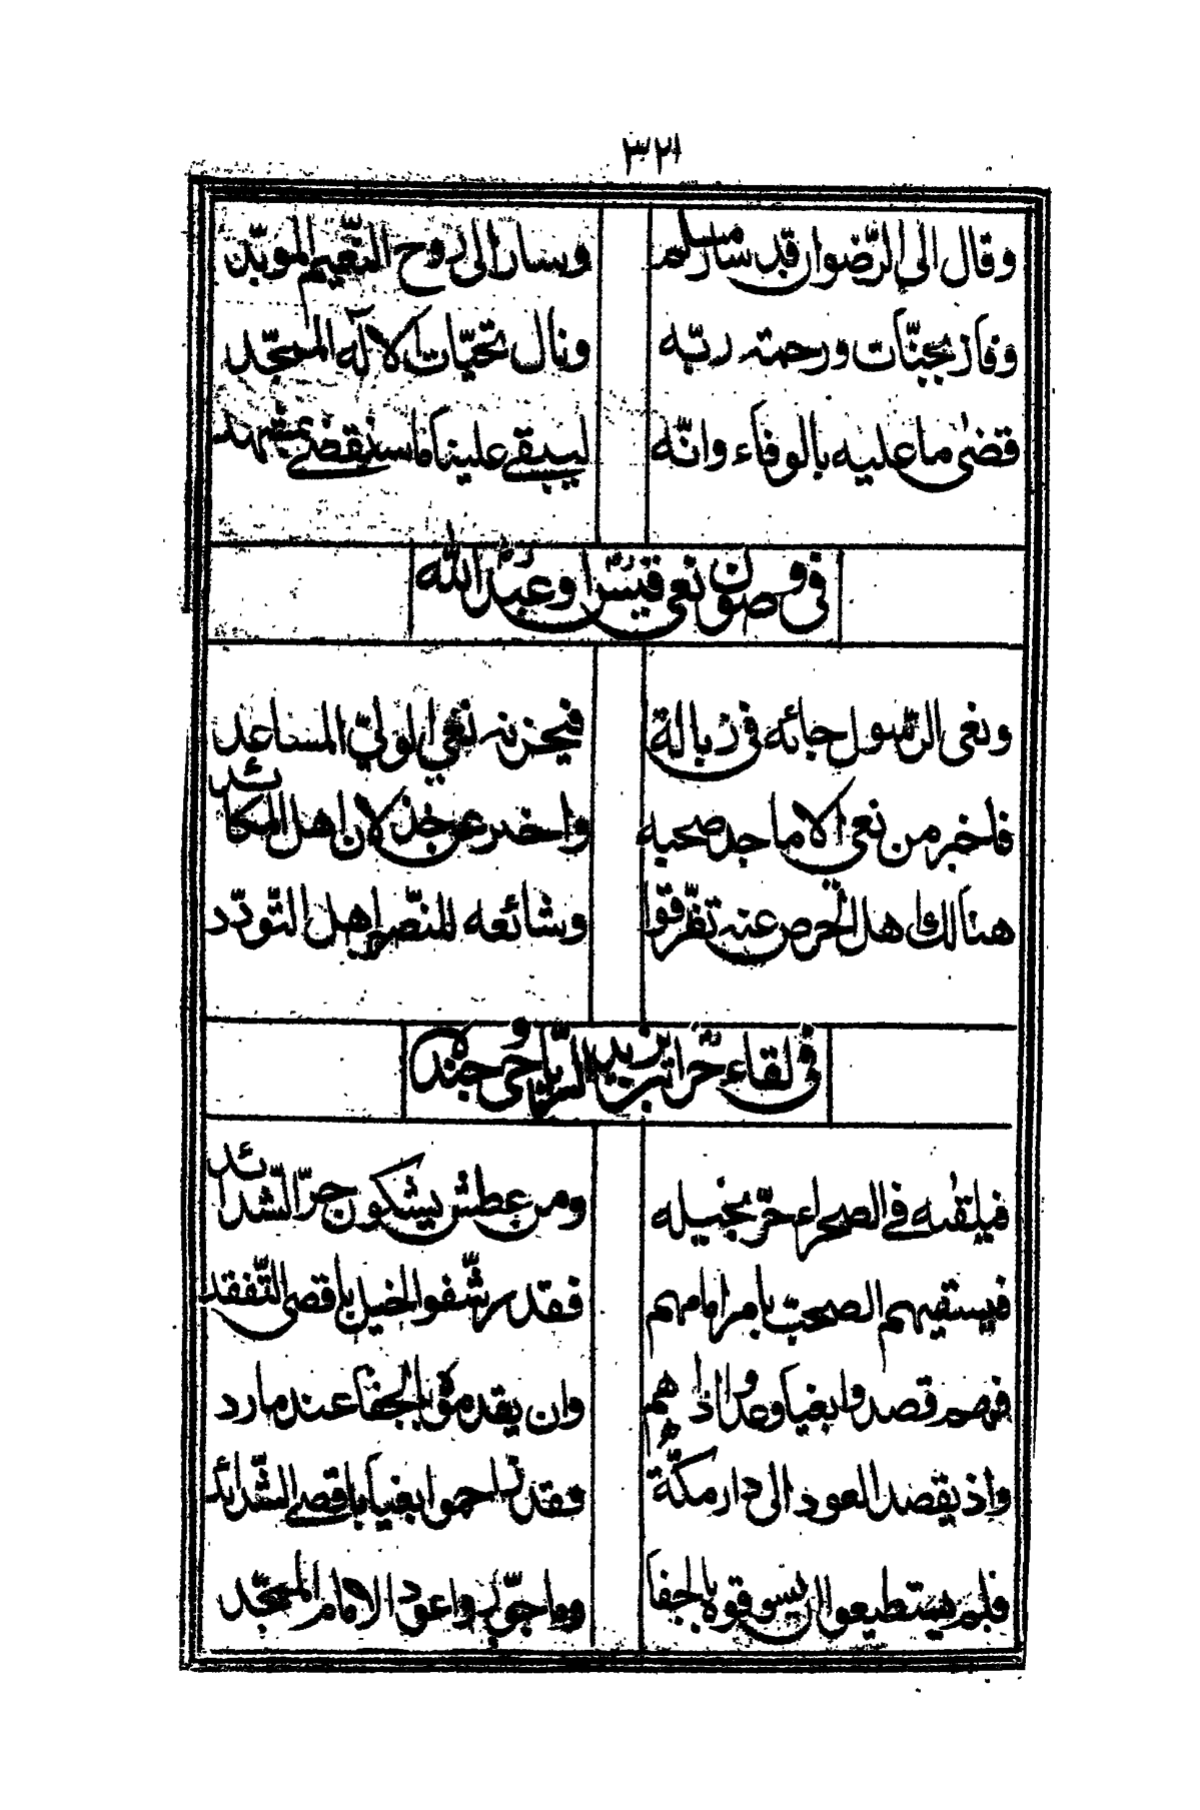 ٣٢١
وقال الى الرّضوان قد سار مسلم وسار الى روح النّعيم المويّد
وفاز بجنّات ورحمته ربّه ونال تحيّات الاله الممجّد
قضى ما عليه بالوفاء وانّه ليبقى علينا ما سنقضى بمشهد
فى وصول نعى قيس وعبد الله
ونعى الرّسول جائه فى زبالة فيحزنه نعى الولىّ المساعد
فاخبر من نعى الاماجد صحبه واخد عن خذلان اهل المكائد
هنالك اهل الحرص عنه تفرّقوا وشائعه للنصر اهل التّودّد
فى لقاء حرّ ابن يزيد الرّياحى وجنده
فيلقٰه فى الصحراء حرّ بخيله ومن عطش يشكون حرّ الشّدائد
فيستقيهم الصحب بامر امامهم فقد رشّفوا الخيل باقصى التّفقد
فهم قصدوا بغيا وعدوا اذاهم وان يقدموه بالجفا عند مارد
واذ يقصد العود الى دار مكّة فقد زاحموا بغيا باقصى الشّدائد
فلم يستطيعوا ان يسوقوه بالجفا وما جوّزوا عود الامام الممجّد